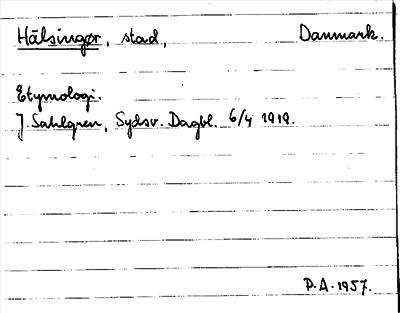 Hälsingør, stad, Danmark.
Etymologi.
J. Sahlgren, Sydsv. Dagbl. 6/4 1919.
P.A. 1957.